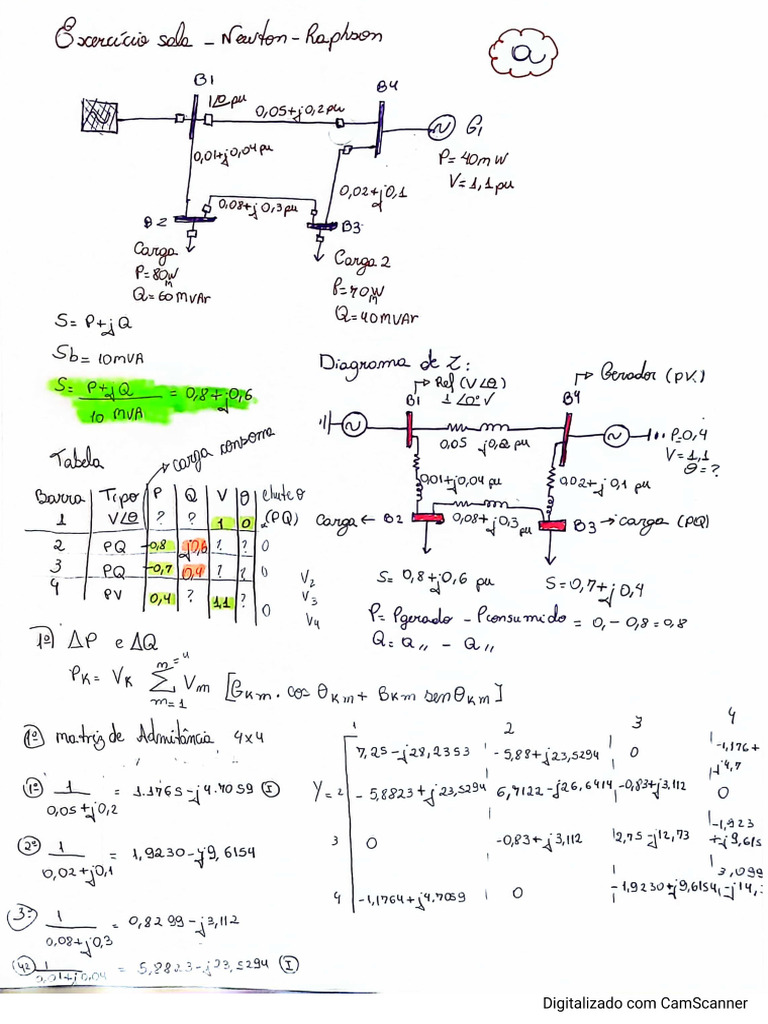 Exercício sala - Newton-Raphson
a
B1
1∠0 pu
B4
0,05+j0,2 pu
G1
P=40mW
V=1,1pu
0,01+j0,04 pu
0,02+j0,1
0,08+j0,3 pu
B2
B3
Carga
P=80MW
Q=60MVAr
Carga 2
P=70MW
Q=40MVAr
S=P+jQ
Sb=10MVA
S= P+jQ / 10 MVA = 0,8+j0,6
Diagrama de Z:
Ref (V∠θ)
1∠0° V
Gerador (PV)
B1
B4
0,05 j0,2 pu
P=0,4
V=1,1
θ=?
0,01+j0,04 pu
0,02+j0,1 pu
0,08+j0,3 pu
Carga ← B2
B3 → carga (PQ)
S= 0,8+j0,6 pu
S=0,7+j0,4
P= Pgerado - Pconsumido = 0,-0,8=0,8
Q= Q,, - Q,,
Tabela
carga consome
Barra Tipo P Q V θ chute θ
1 V∠θ ? ? 1 0 (PQ)
2 PQ -0,8 j0,6 ? ? 0
3 PQ -0,7 0,4 ? ? 0
4 PV 0,4 ? 1,1 ? 0
V2
V3
V4
1º) ΔP e ΔQ
PK= VK Σ m=1 m=4 Vm [GKm . cos θKm + BKm sen θKm]
1º) matriz de Admitância 4x4
1º) 1 / 0,05+j0,2 = 1.1765-j4.7059 (I)
2º) 1 / 0,02+j0,1 = 1,9230-j9,6154
3º) 1 / 0,08+j0,3 = 0,8299-j3,112
4º) 1 / 0,01+j0,04 = 5,8823-j23,5294 (I)
1 2 3 4
7,25-j28,2353 -5,88+j23,5294 0 -1,176+j4,7
Y= 2 -5,8823+j23,5294 6,7122-j26,6414 -0,83+j3,112 0
3 0 -0,83+j3,112 2,75-j12,73 -1,923+j9,615
4 -1,1764+j4,7059 0 -1,9230+j9,6154 3,099-j14,
Digitalizado com CamScanner